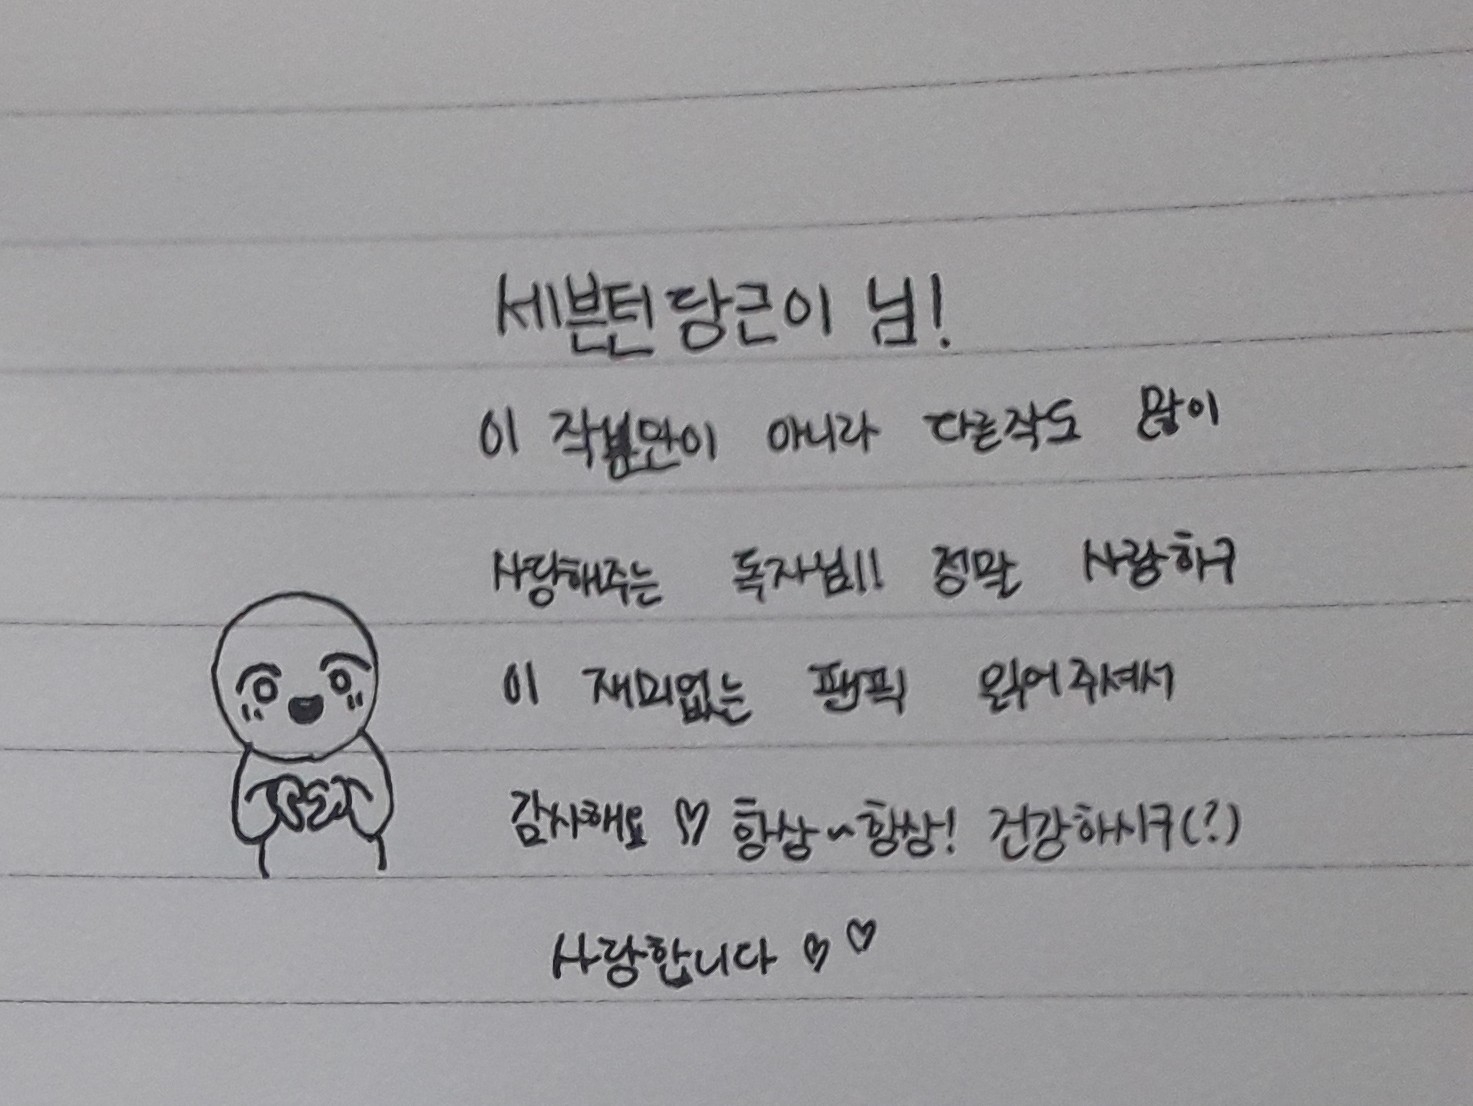 세븐틴당근이 님!
이 작품만이 아니라 다른작도 많이
사랑해주는 독자님!! 정말 사랑하구
이 재미없는 팬픽 읽어주셔서
감사해요 ♡ 항상~항상! 건강하시구(?)
사랑합니다 ♡♡